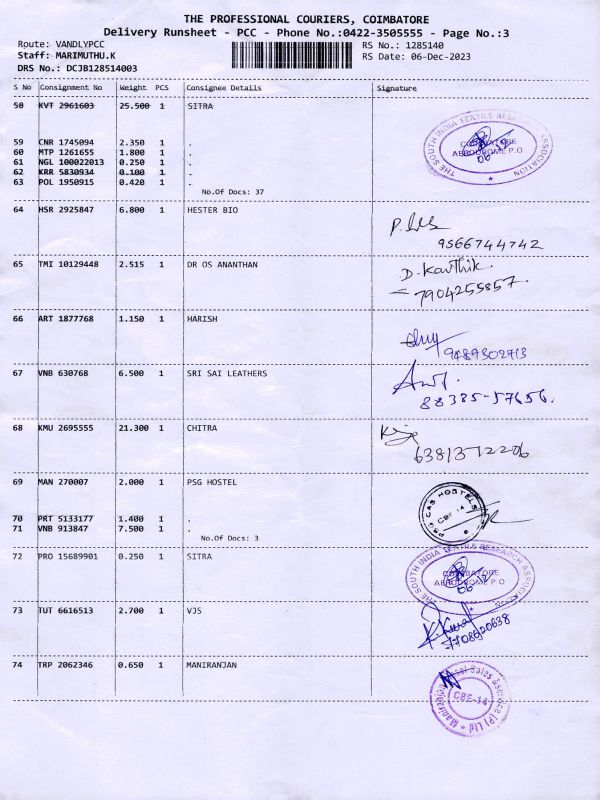 THE PROFESSIONAL COURIERS, COIMBATORE
Delivery Runsheet - PCC - Phone No.:0422-3505555 - Page No.:3
Route: VANDLYPCC RS No.: 1285140
Staff: MARIMUTHU.K RS Date: 06-Dec-2023
DRS No.: DCJB128514003
S No Consignment No Weight PCS Consignee Details Signature
58 KVT 2961603 25.500 1 SITRA
THE SOUTH INDIA TEXTILE RESEARCH ASSOCIATION
COIMBATORE
AERODROME P.O
59 CNR 1745094 2.350 1 .
60 MTP 1261655 1.800 1 .
61 NGL 100022013 0.250 1 .
62 KRR 5830934 0.100 1 .
63 POL 1950915 0.420 1 .
No.Of Docs: 37
64 HSR 2925847 6.800 1 HESTER BIO
9566744742
65 TMI 10129448 2.515 1 DR OS ANANTHAN D. Karthik
7904255857
66 ART 1877768 1.150 1 HARISH
9489502713
67 VNB 630768 6.500 1 SRI SAI LEATHERS
88385-57656.
68 KMU 2695555 21.300 1 CHITRA
6381372206
69 MAN 270007 2.000 1 PSG HOSTEL
PSG CAS HOSTELS
CBE-14
70 PRT 5133177 1.400 1 .
71 VNB 913847 7.500 1 .
No.Of Docs: 3
72 PRO 15689901 0.250 1 SITRA
THE SOUTH INDIA TEXTILE RESEARCH ASSOCIATION
COIMBATORE
AERODROME P.O
73 TUT 6616513 2.700 1 VJS
7708920638
74 TRP 2062346 0.650 1 MANIRANJAN
CBE-14